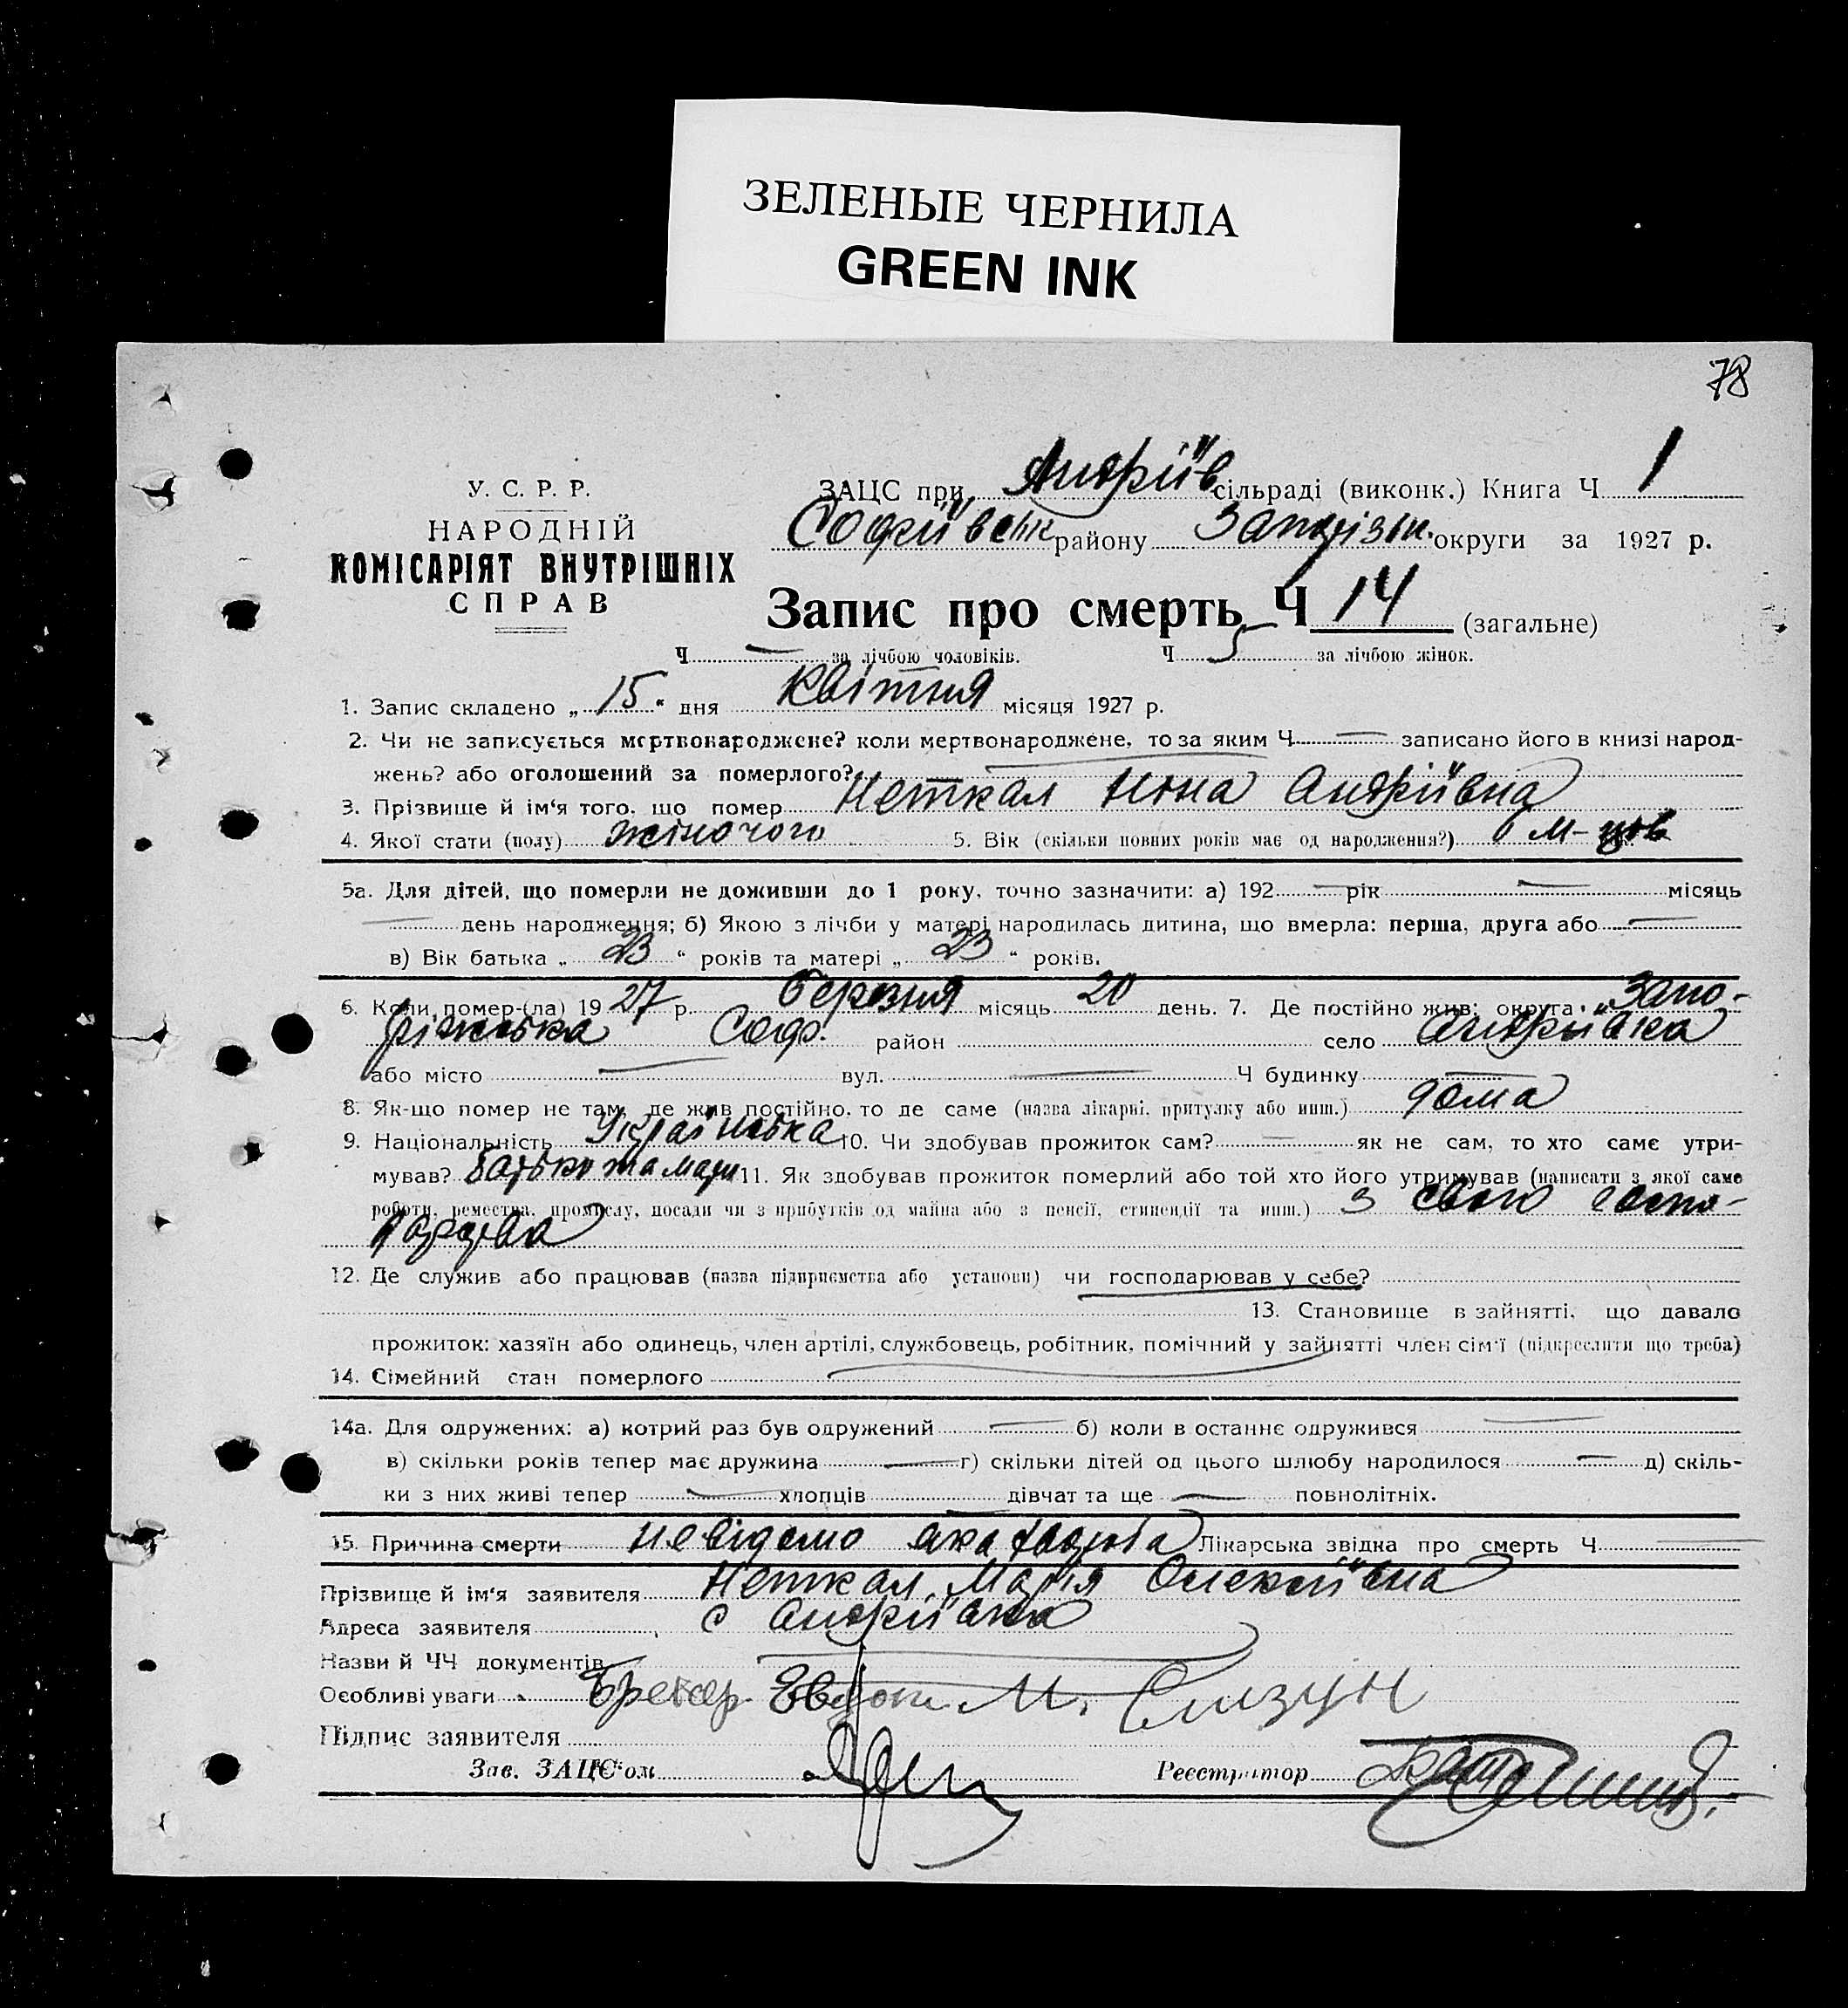 ЗЕЛЕНЫЕ ЧЕРНИЛА
GREEN INK
78
У. С. Р. Р.
НАРОДНІЙ
КОМІСАРІЯТ ВНУТРІШНІХ
СПРАВ
ЗАЦС при Андріїв сільраді (виконк.) Книга Ч 1
Софіївськ району Запорізьк. округи за 1927 р.
Запис про смерть Ч 14 (загальне)
Ч — за лічбою чоловіків. Ч 5 за лічбою жінок.
1. Запис складено „ 15 " дня квітня місяця 1927 р.
2. Чи не записується мертвонароджене? коли мертвонароджене, то за яким Ч — записано його в книзі народ-
жень? або оголошений за померлого?
3. Прізвище й ім'я того, що помер Неткал Нона Андріївна
4. Якої стати (полу) жіночого 5. Вік (скільки повних років має од народження?) м-ців
5а. Для дітей, що померли не доживши до 1 року, точно зазначити: а) 192 — рік — місяць
— день народження; б) Якою з лічби у матері народилась дитина, що вмерла: перша, друга або —
в) Вік батька „ 23 " років та матері „ 23 " років.
6. Коли помер-(ла) 19 27 р. березня місяць 20 день. 7. Де постійно жив: округа Запо-
ріжська Соф. район село Андріївка
або місто — вул. — Ч будинку —
8. Як-що помер не там, де жив постійно, то де саме (назва лікарні, притулку або инш.) дома
9. Національність Українська 10. Чи здобував прожиток сам? — як не сам, то хто саме утри-
мував? батько та мати 11. Як здобував прожиток померлий або той хто його утримував (написати з якої саме
роботи, ремества, промислу, посади чи з прибутків од майна або з пенсії, стипендії та инш.) з свого госпо-
дарства
12. Де служив або працював (назва підприємства або установи) чи господарював у себе?
13. Становище в зайнятті, що давало
прожиток: хазяїн або одинець, член артілі, службовець, робітник, помічний у зайнятті член сім'ї (підкреслити що треба)
14. Сімейний стан померлого
14а. Для одружених: а) котрий раз був одружений — б) коли в останнє одружився —
в) скільки років тепер має дружина — г) скільки дітей од цього шлюбу народилося — д) скіль-
ки з них живі тепер — хлопців — дівчат та ще — повнолітніх.
15. Причина смерти невідомо яка хвороба Лікарська звідка про смерть Ч —
Прізвище й ім'я заявителя Неткал Марія Олексіївна
Адреса заявителя с Андріївка
Назви й ЧЧ документів
Особливі уваги
Підпис заявителя
Зав. ЗАЦС'ом Реєстратор